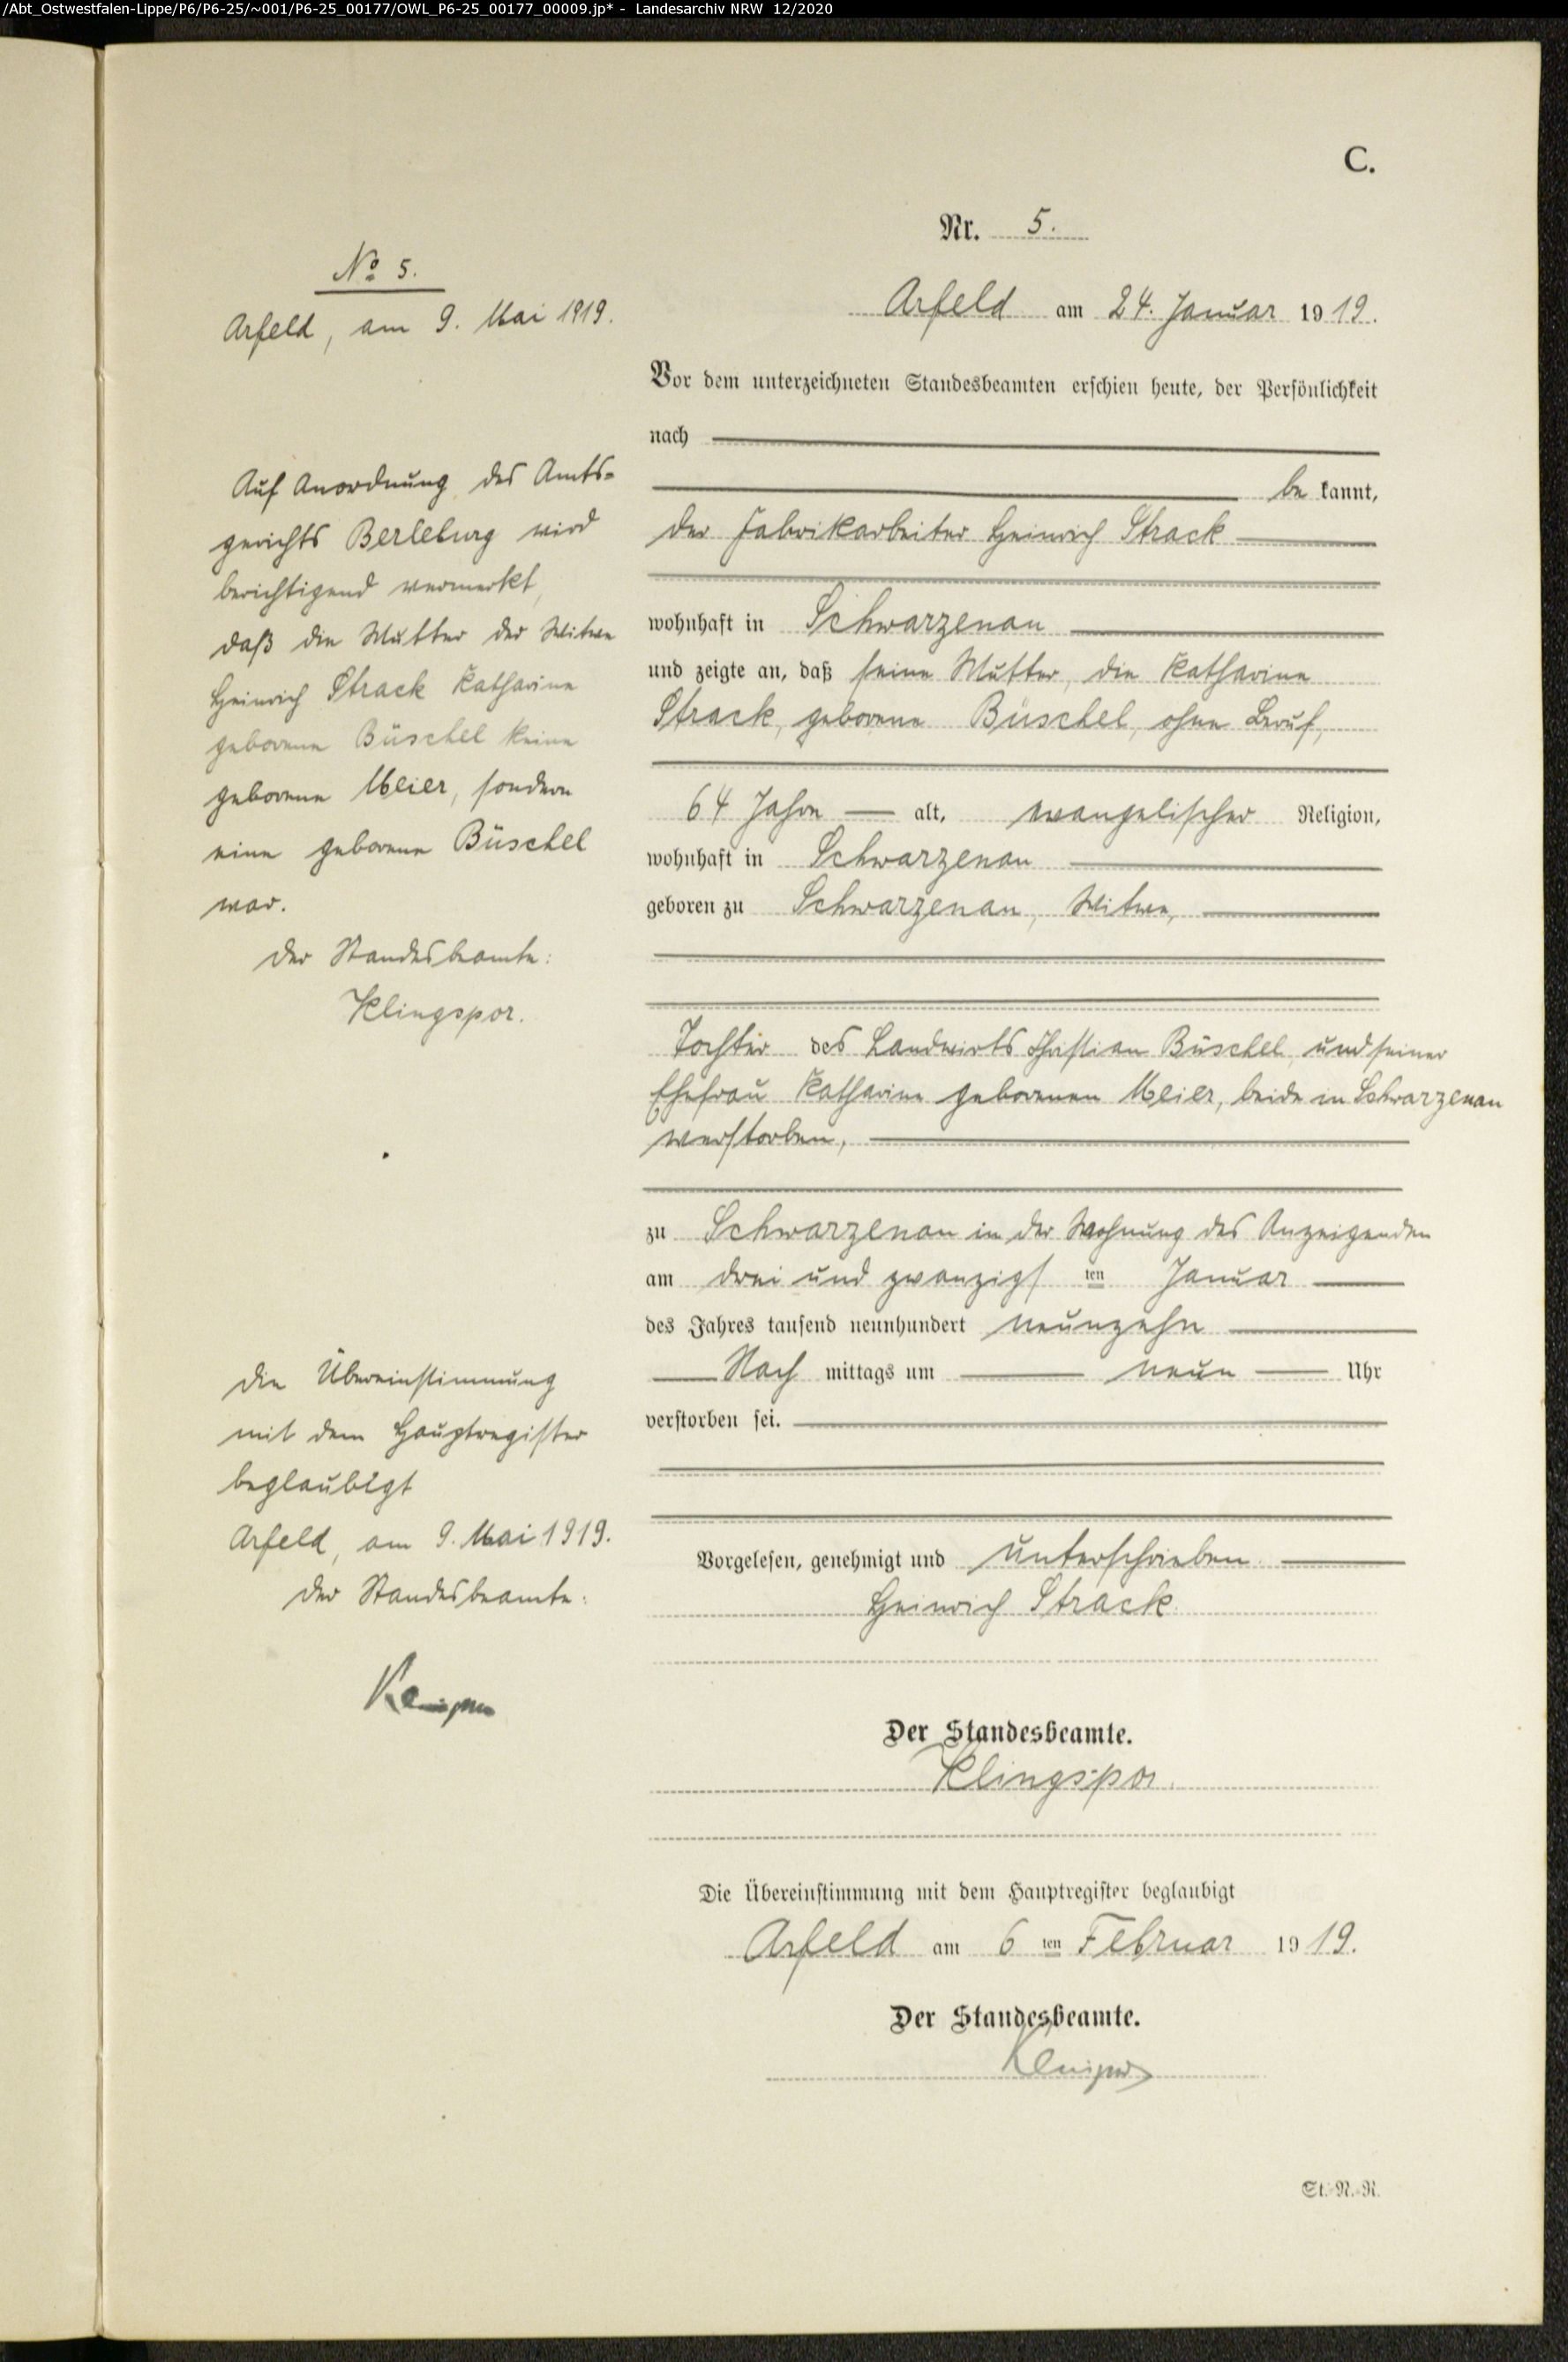 /Abt_Ostwestfalen-Lippe/P6/P6-25/~001/P6-25_00177/OWL_P6-25_00177_00009.jp* - Landesarchiv NRW 12/2020
C.
Nr. 5.
Arfeld am 24. Januar 1919.
Vor dem unterzeichneten Standesbeamten erschien heute, der Persönlichkeit
nach
be kannt,
der Fabrikarbeiter Heinrich Strack
wohnhaft in Schwarzenau
und zeigte an, daß seine Mutter, die Katharine
Strack, geborene Büschel, ohne Beruf,
64 Jahre alt, evangelischer Religion,
wohnhaft in Schwarzenau
geboren zu Schwarzenau, Witwe,
Tochter des Landwirts Christian Büschel und seiner
Ehefrau Katharine geborenen Meier, beide in Schwarzenau
verstorben,
zu Schwarzenau in der Wohnung des Anzeigenden
am drei und zwanzigs ten Januar
des Jahres tausend neunhundert neunzehn
Nach mittags um neun Uhr
verstorben sei.
Vorgelesen, genehmigt und unterschrieben.
Heinrich Strack
Der Standesbeamte.
Klingspor.
Die Übereinstimmung mit dem Hauptregister beglaubigt
Arfeld am 6 ten Februar 1919.
Der Standesbeamte.
St.-N.-R.
No 5.
Arfeld, am 9. Mai 1919.
Auf Anordnung des Amts=
gerichts Berleburg wird
berichtigend vermerkt,
daß die Mutter der Witwe
Heinrich Strack Katharine
geborene Büschel keine
geborene Meier, sondern
eine geborene Büschel
war.
Der Standesbeamte:
Klingspor.
Die Übereinstimmung
mit dem Hauptregister
beglaubigt
Arfeld, am 9. Mai 1919.
Der Standesbeamte: